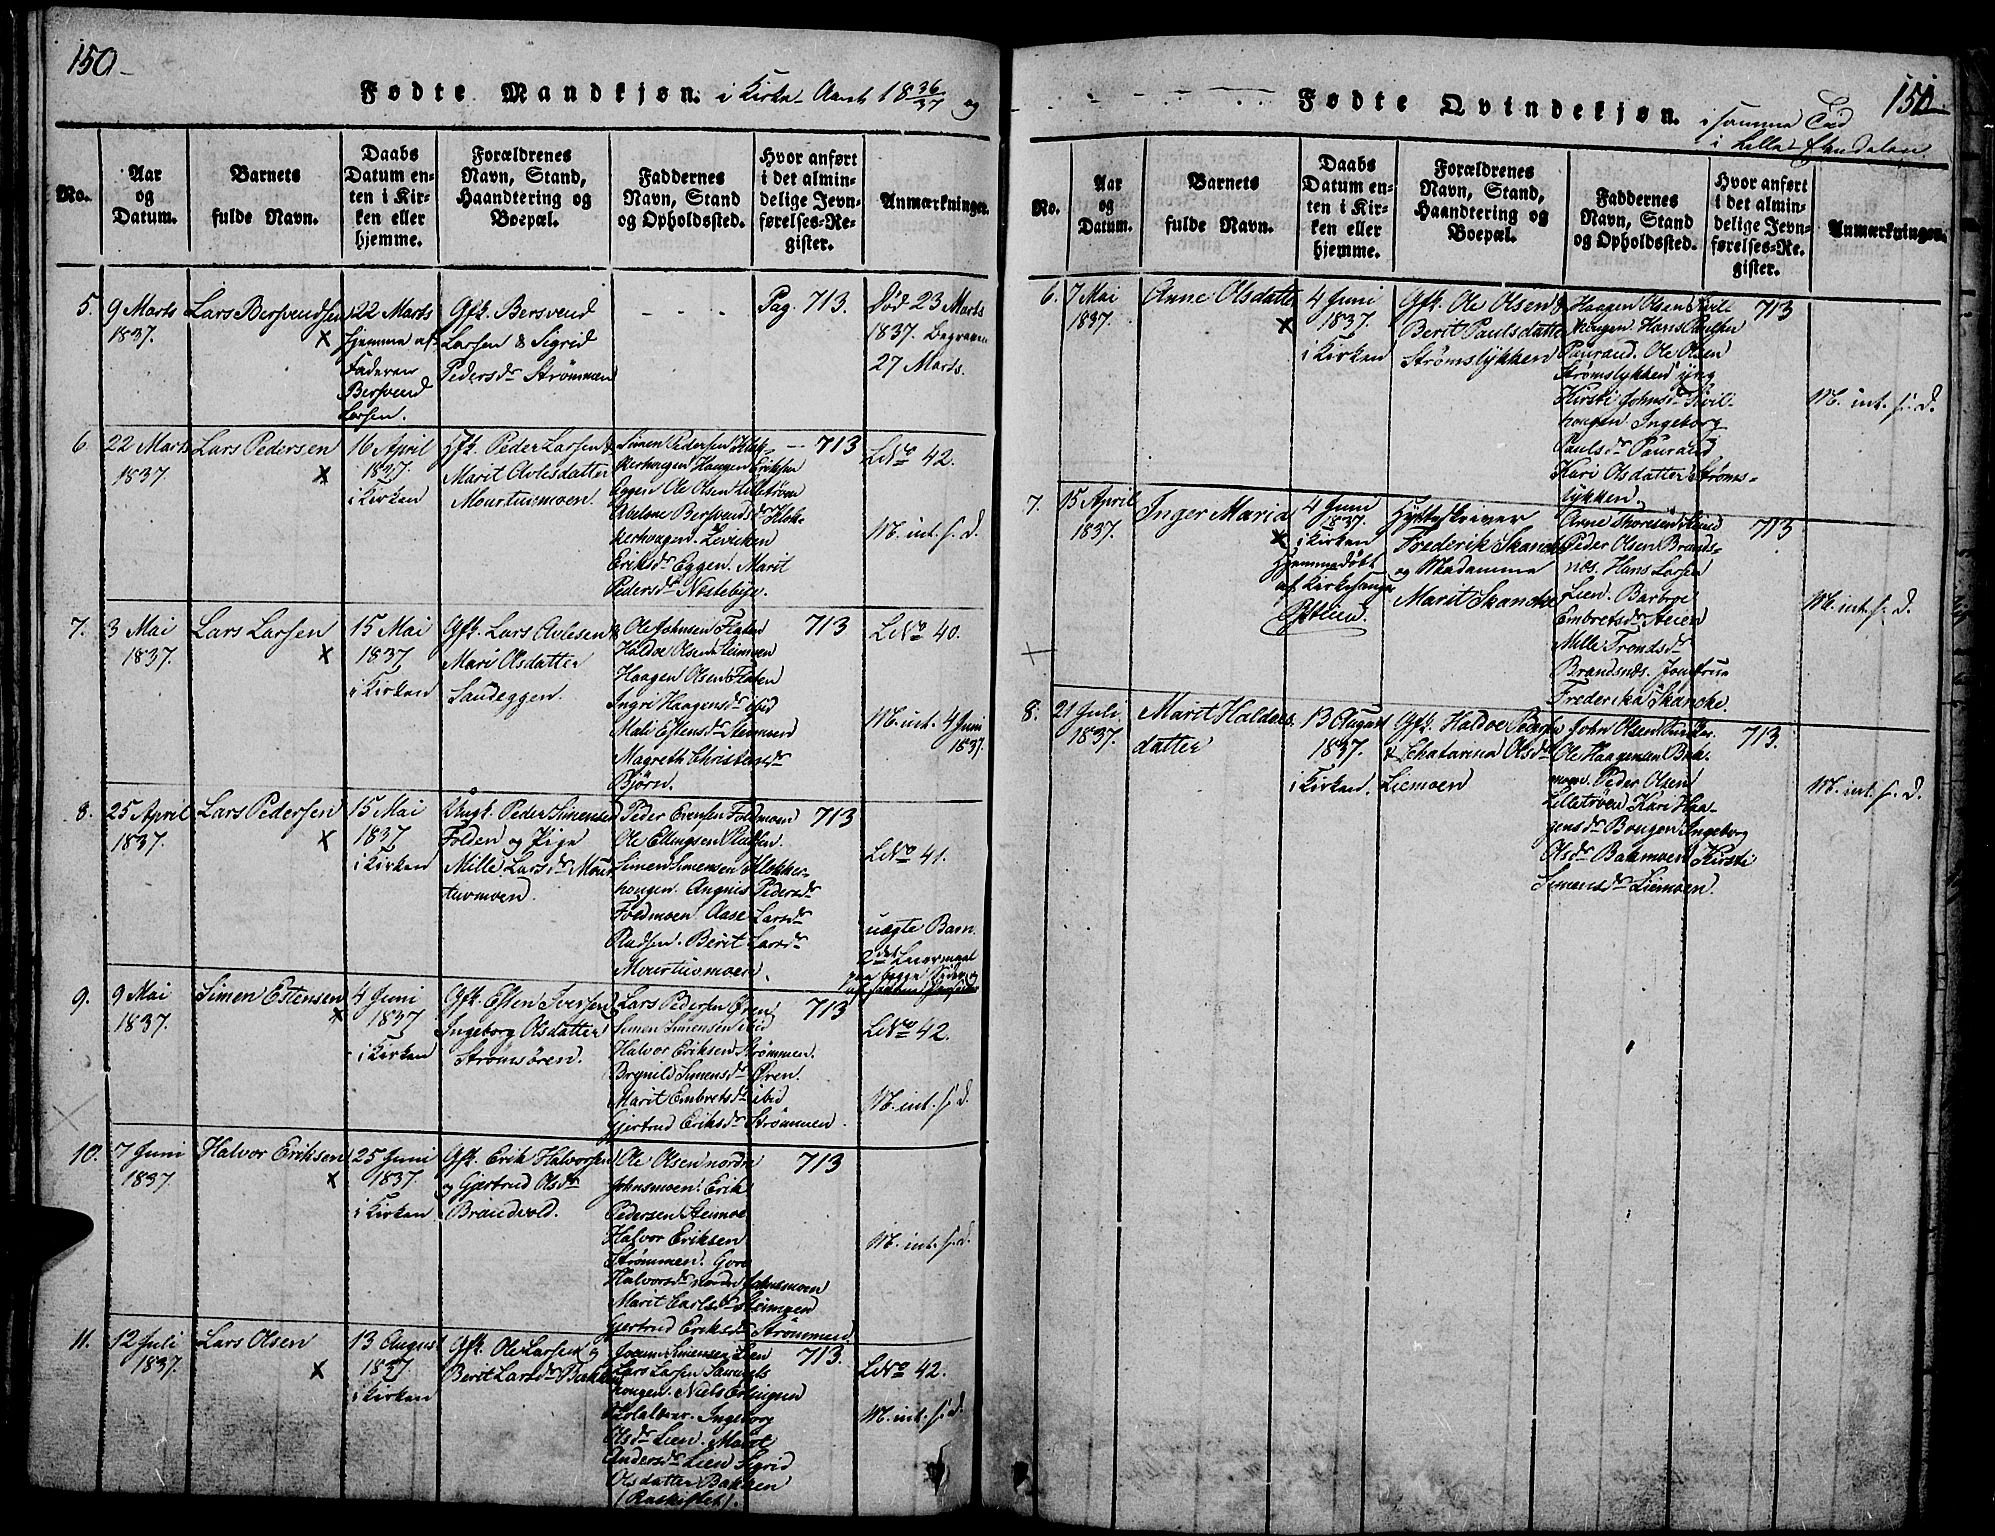 150
Fødte Mandkjøn. i Kirke-Aaret 18 36/37 og
No.
Aar
og
Datum.
Barnets
fulde Navn.
Daabs
Datum en-
ten i Kir-
ken eller
hjemme.
Forældrenes
Navn, Stand,
Haandtering og
Boepæl.
Faddernes
Navn, Stand
og Opholdssted.
Hvor anført
i det almin-
delige Jevn-
førelses-Re-
gister.
Anmærkninger.
5.
9 Marts
1837.
Lars Bersvendsen
22 Marts
hjemme af
Faderen
Bersvend
Larsen.
Gfk. Bersvend
Larsen & Sigrid
Pedersdr Strømmen
Pag. 713.
Død 23 Marts
1837. Begraven
27 Marts.
6.
22 Marts
1837.
Lars Pedersen
16 April
1837
i Kirken
Gfk. Peder Larsen &
Marit Avlesdatter
Mourtusmoen.
Simen Pedersen Klok-
kerhougen Haagen Eriksen
Eggen Ole Olsen Lilletrøen
Abelone Bersvendsdr Klok-
kerhougen
Eriksdr Eggen. Marit
Pedersdr Nøstebye.
713
LNo 42.
M. int. s. d.
7.
3 Mai
1837.
Lars Larsen
15 Mai
1837
i Kirken
Gfk. Lars Avlesen &
Mari Olsdatter
Sandeggen.
Ole Johnsen Floten
Haldoe Olsen Leimoen
Haagen Olsen Floten
Ingri Haagensdr ibid
Mali Estensdr
Magreth Christensdr
Bjørn.
713
LNo 40.
M. int. 4 Juni
1837.
8.
25 April
1837.
Lars Pedersen
15 Mai
1837
i Kirken
Ungk. Peder Simensen
Folden og Pige
Mille Larsdr Mour-
tusmoen.
Peder Evensen Foldmoen
Ole Ellingsen Pladsen.
Simen Simensen Klokker-
hougen. Angnis Pedersdr
Foldmoen Aase Larsdr
Pladsen. Berit Larsdr
Mourtusmoen.
713
LNo 41.
uægte Barn.
2det Leiermaal
paa begge Sider
9.
9 Mai
1837.
Simen Estensen
4 Juni
1837
i Kirken
Gfk. Esten Iversen &
Ingeborg Olsdatter
Strømsøren.
Lars Pedersen Øren
Simen Simensen ibid
Halvor Eriksen Strømmen.
Brynild Simensdr Øren.
Marit Embretsdr ibid
Gjertrud Eriksdr Strømmen.
713
LNo 42.
M. int. s. d.
10.
7 Juni
1837.
Halvor Eriksen
25 Juni
1837.
i Kirken
Gfk. Erik Halvorsen
og Gjertrud Olsdr
Brandvold.
Ole Olsen nordre
Johnsmoen. Erik
Pedersen Steimoe
Halvor Eriksen
Strømmen. Goro
Halvorsdr nordre Johnsmoen
Marit Carlsdr Steimoen
Gjertrud Eriksdr Strømmen.
713
M. int. s. d.
11.
12 Juli
1837.
Lars Olsen
13 August
1837
i Kirken
Gfk. Ole Larsen og
Berit Larsdr Bakken
Joen Simensen Lien
Lars Larsen Samuels-
hougen. Niels Erlingsen
Ingeborg
Olsdr Lien. Marit
Andersdr Lien Sigrid
Olsdatter Bakken
713.
LNo 42.
M. int. s. d.
151.
Fødte Qvindekjøn. i samme Tid
i Lille-Elvedalen.
No.
Aar
og
Datum.
Barnets
fulde Navn.
Daabs
Datum en-
ten i Kir-
ken eller
hjemme.
Forældrenes
Navn, Stand,
Haandtering og
Boepæl.
Faddernes
Navn, Stand
og Opholdssted.
Hvor anført
i det almin-
delige Jevn-
førelses-Re-
gister.
Anmærkninger.
6.
7 Mai
1837.
Anne Olsdatter
4 Juni
1837.
i Kirken
Gfk. Ole Olsen &
Berit Paulsdatter
Strømslykken
Haagen Olsen Kvil-
hougen. Hans Paulsen
Pauraud. Ole Olsen
Strømslykken yng
Kirsti Johnsdr Kvil-
hougen Ingeborg
Paulsdr Pauraud
Kari Olsdatter Strøms-
lykken.
713
M. int. s. d.
7.
15 April
1837.
Inger Maria
4 Juni
1837.
i Kirken
Hjemmedøbt
af Kirkesanger
Østeien.
Hytteskriver
Frederik Skancke
og Madamme
Marit Skancke
Arne Thoresen Sund
Peder Olsen Brands-
næs. Hans Larsen
Lien. Barbroe
Embretsdr Steien
Mille Trondsdr
Brandsnæs. Jomfrue
Frederika Skancke.
713
M. int. s. d.
8.
21 Juli
1837.
Marit Haldoes-
datter
13 August
1837.
i Kirken.
Gfk. Haldoe Pedersen
& Chatarina Olsdr
Liemoen
John Olsen
Ole Haagensen Bak-
moen. Peder Olsen
Lilletrøen Kari Haa-
gensdr Bougen Ingeborg
Olsdr Bakmoen Kirsti
Simensdr Liemoen.
713.
M. int. s. d.